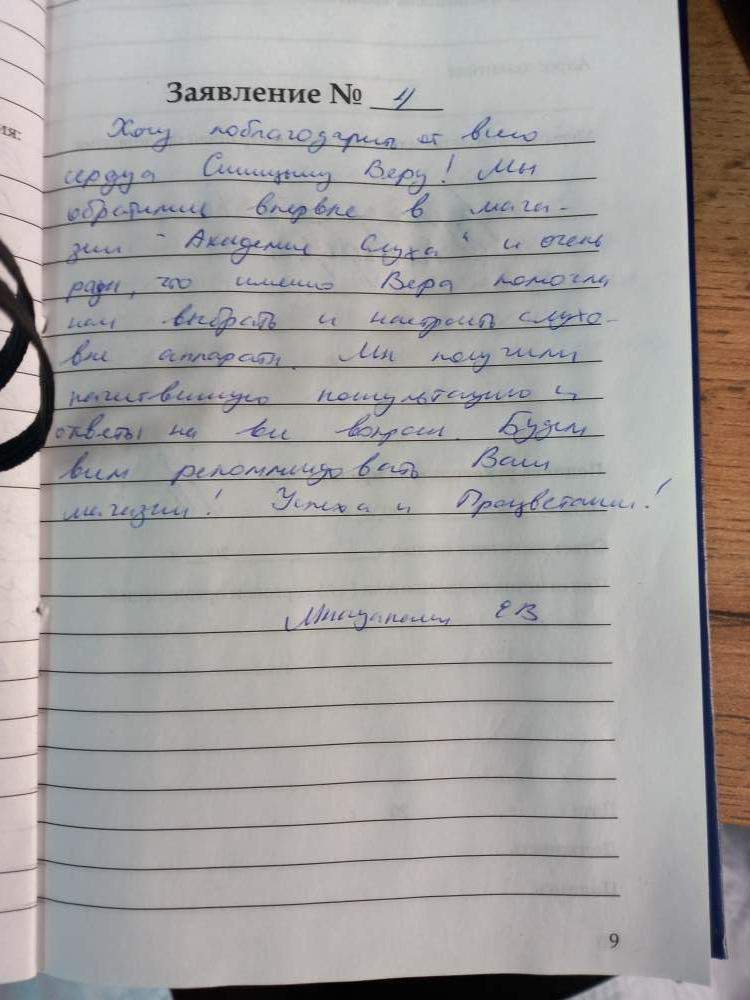 Заявление № 4
Хочу поблагодарить от всего
сердца Синицыну Веру! Мы
обратились впервые в мага-
зин "Академия Слуха" и очень
рады, что именно Вера помогла
нам выбрать и настроить слухо-
вые аппараты. Мы получили
консультацию и
ответы на все вопросы. Будем
всем рекомендовать Ваш
магазин! Успеха и Процветания!
ЕВ
9